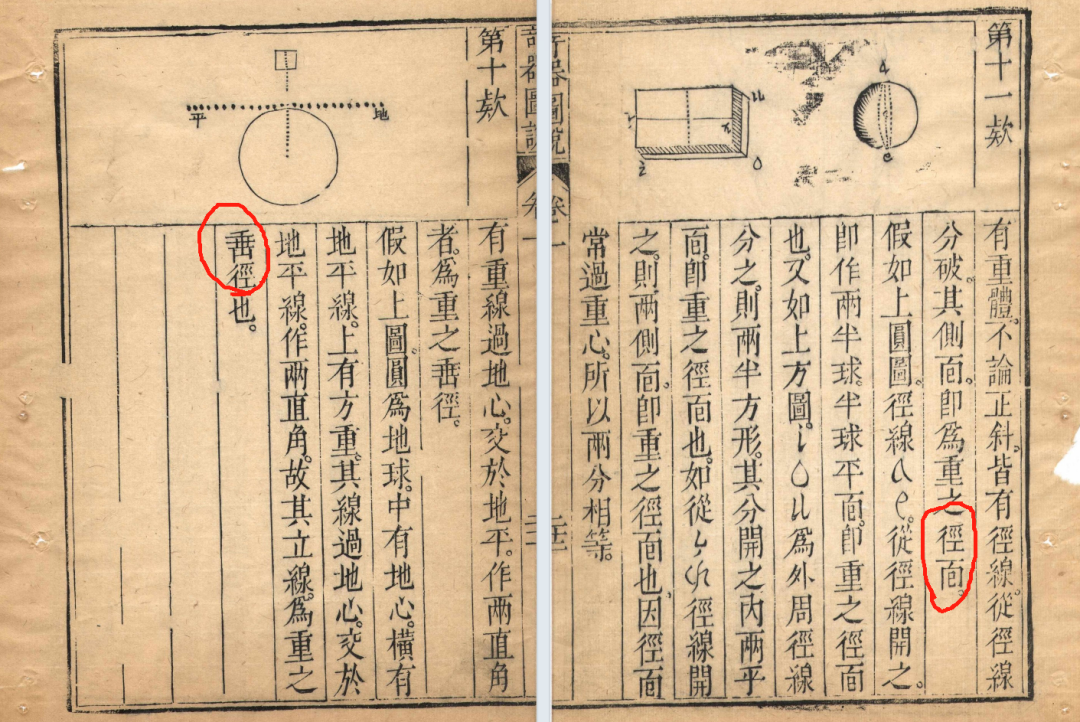 第十一款
有重體。不論正斜。皆有徑線。從徑線
分破。其側面。即爲重之徑面。
假如上圓圖。徑線a e。從徑線開之。
即作兩半球。半球平面。即重之徑面
也。又如上方圖。i o u爲外周徑線
分之。則兩半方形。其分開之內兩平
面。即重之徑面也。如從徑線開
之。則兩側面。即重之徑面也。因徑面
常過重心。所以兩分相等。
奇器圖說 卷一
第十款
平
地
有重線過地心。交於地平。作兩直角
者。爲重之垂徑。
假如上圖。圓爲地球。中有地心。橫有
地平線。上有方重。其線過地心。交於
地平線。作兩直角。故其立線。爲重之
垂徑也。